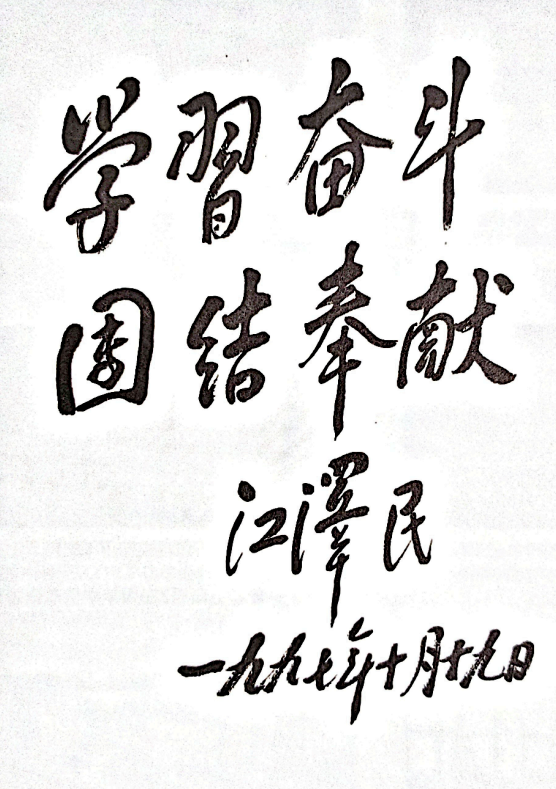 学習奋斗
团结奉献
江澤民
一九九七年十月十九日